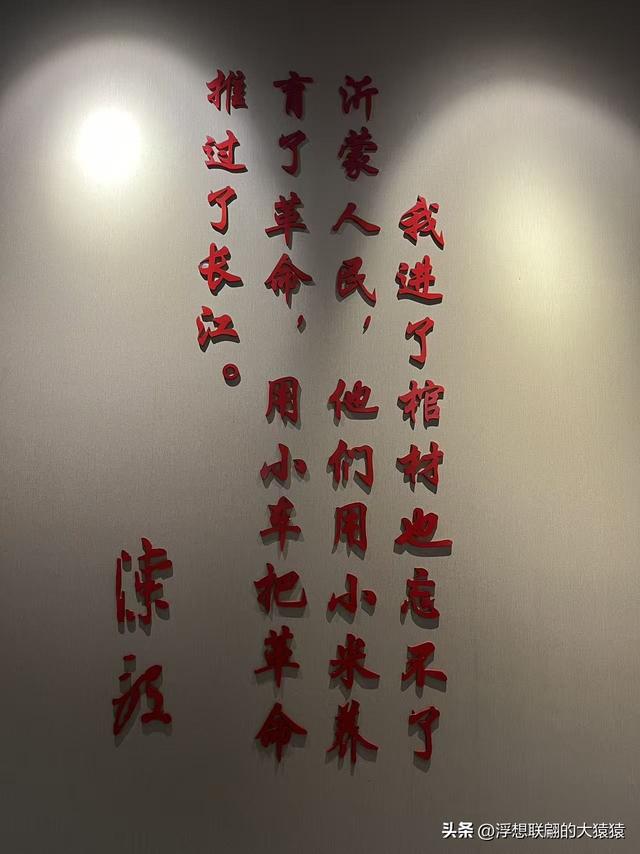 我进了棺材也忘不了
沂蒙人民，他们用小米养
育了革命，用小车把革命
推过了长江。
陈毅
头条 @浮想联翩的大猿猿